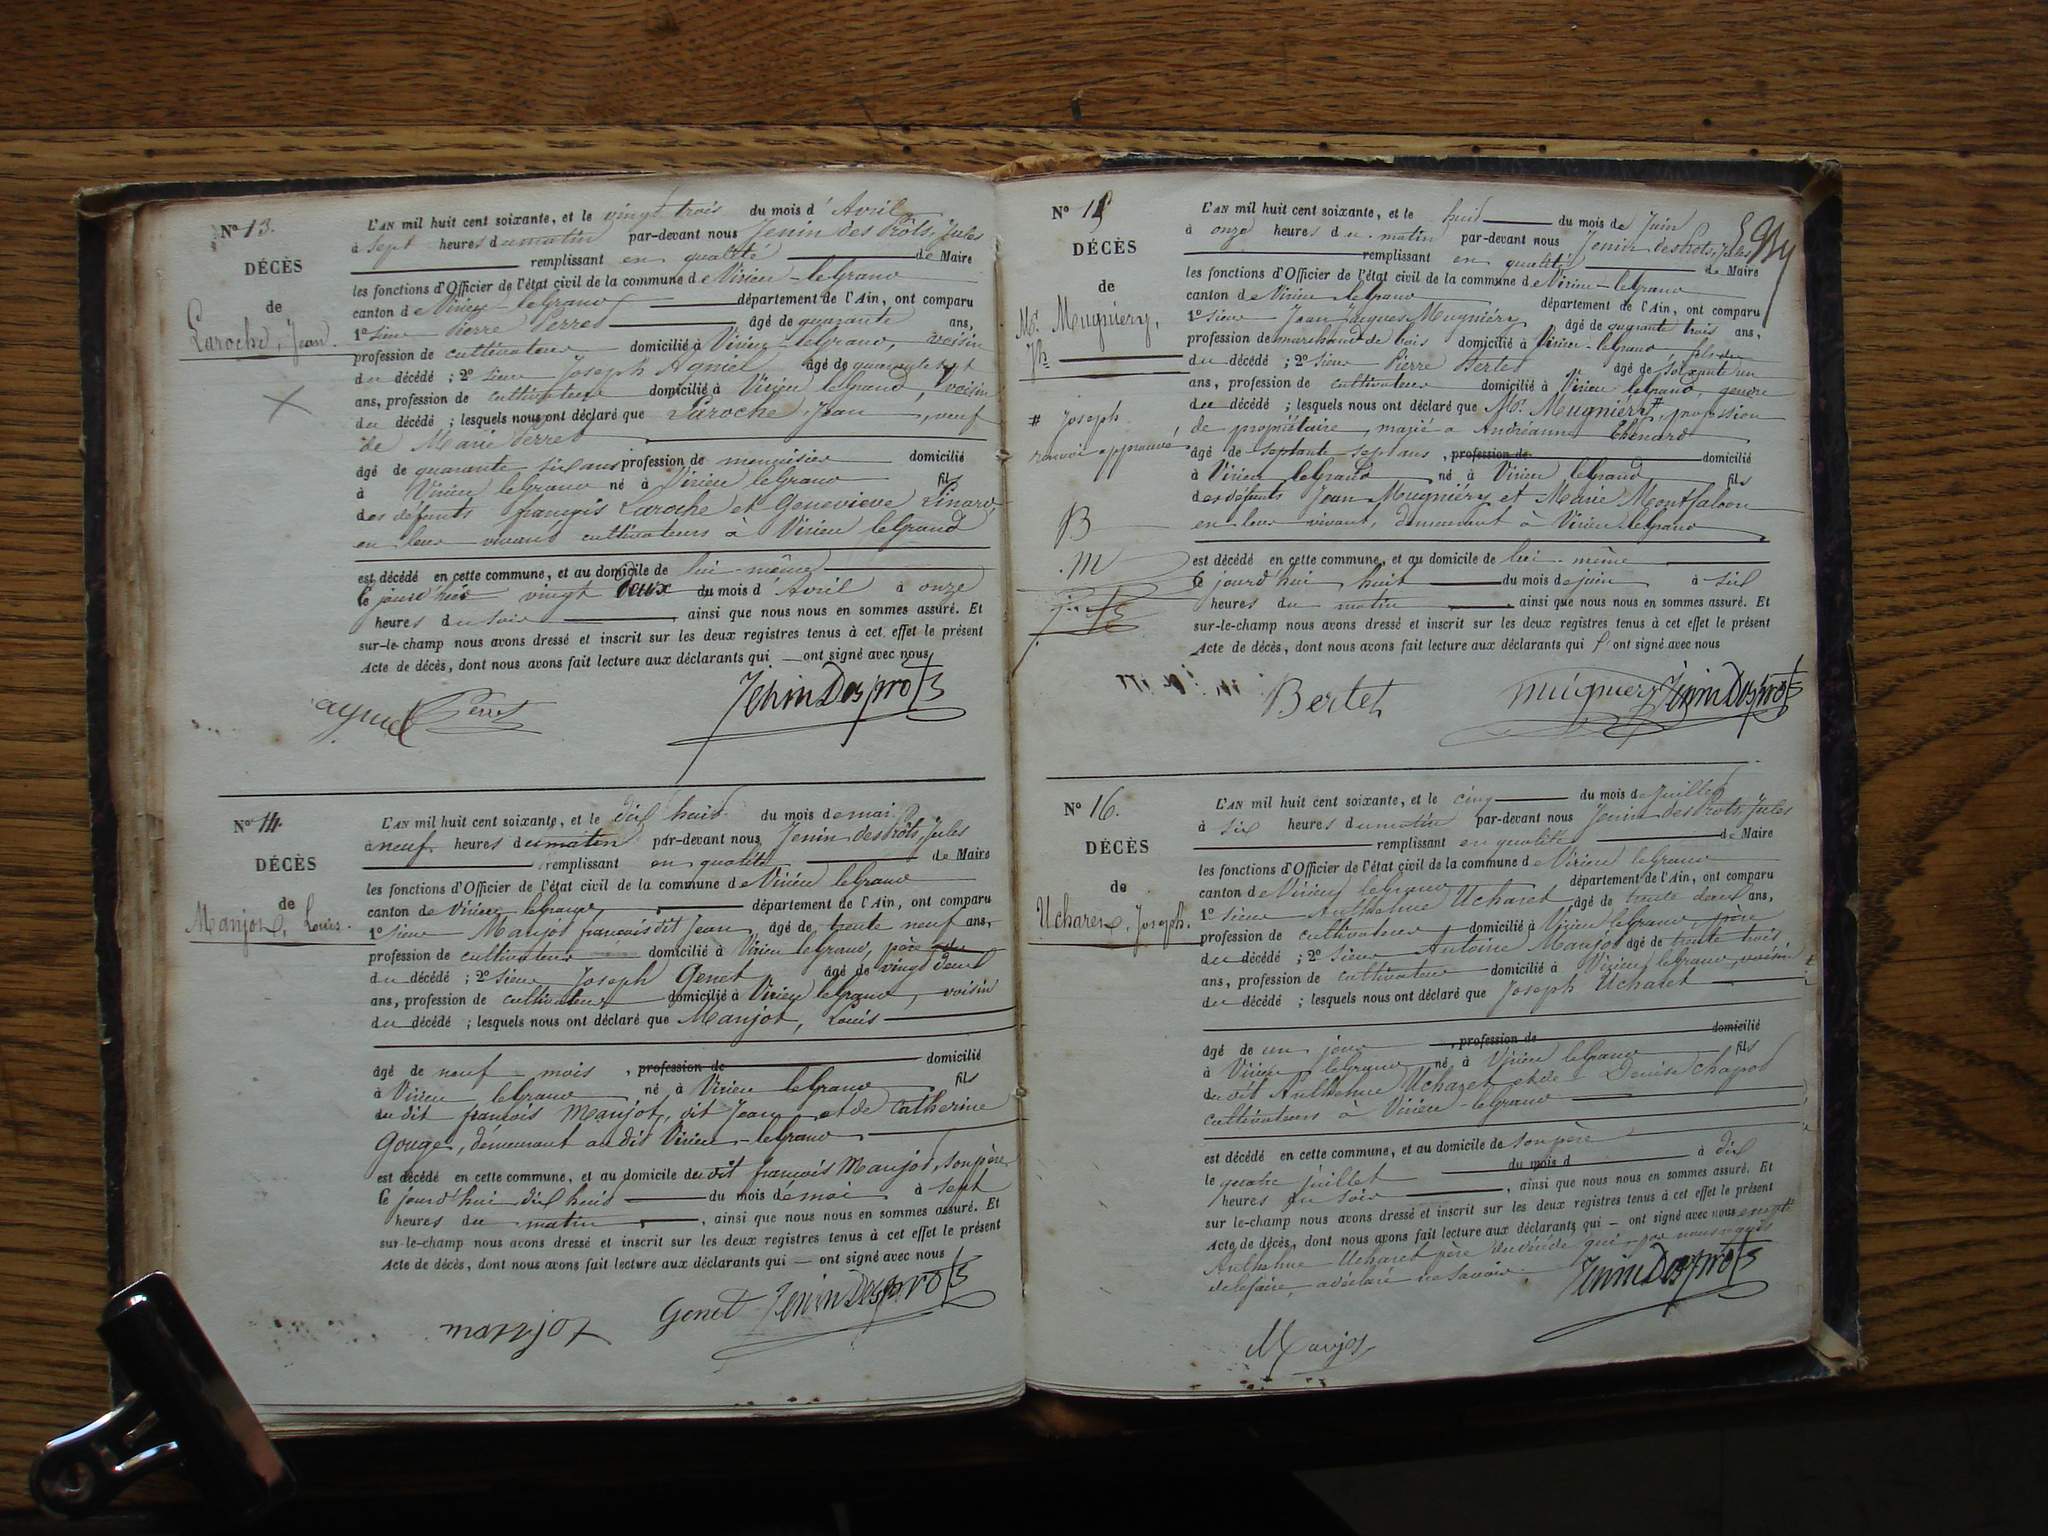 N° 13.
DÉCÈS
de
Laroche, Jean.
L'AN mil huit cent soixante, et le vingt trois du mois d'Avril
à sept heures du matin par-devant nous Jenin des Prots, Jules
remplissant en qualité de Maire
les fonctions d'Officier de l'état civil de la commune de Virieu-le-Grand
canton de Virieu-le-Grand département de l'Ain, ont comparu
1° sieur Pierre Perret âgé de quarante ans,
profession de cultivateur domicilié à Virieu-le-Grand, voisin
du décédé ; 2° sieur Joseph Agniel âgé de quarante sept
ans, profession de cultivateur domicilié à Virieu le Grand, voisin
du décédé ; lesquels nous ont déclaré que Laroche, Jean, veuf
de Marie Perret
âgé de quarante six ans profession de menuisier domicilié
à Virieu le Grand né à Virieu le Grand fils
des défunts françois Laroche et Geneviève Linard,
en leur vivant cultivateurs à Virieu le Grand
est décédé en cette commune, et au domicile de lui-même
le jourd'hier vingt deux du mois d'Avril à onze
heures du soir ainsi que nous nous en sommes assuré. Et
sur-le-champ nous avons dressé et inscrit sur les deux registres tenus à cet effet le présent
Acte de décès, dont nous avons fait lecture aux déclarants qui ont signé avec nous
agniel Perret JeninDesprots
N° 14.
DÉCÈS
de
Manjot, Louis.
L'AN mil huit cent soixante, et le dix huit du mois de mai
à neuf heures du matin par-devant nous Jenin des Prots, Jules
remplissant en qualité de Maire
les fonctions d'Officier de l'état civil de la commune de Virieu le Grand
canton de Virieu le Grand, département de l'Ain, ont comparu
1° sieur Manjot françois dit Jean, âgé de trente neuf ans,
profession de cultivateur domicilié à Virieu le Grand, père
du décédé ; 2° sieur Joseph Genet âgé de vingt deux
ans, profession de cultivateur domicilié à Virieu le Grand, voisin
du décédé ; lesquels nous ont déclaré que Manjot, Louis
âgé de neuf mois, profession de domicilié
à Virieu le Grand né à Virieu le Grand fils
du dit françois Manjot, dit Jean et de Catherine
Gouge, demeurant audit Virieu-le-Grand
est décédé en cette commune, et au domicile du dit françois Manjot, son père
le jourd'hui dix huit du mois de mai à sept
heures du matin, ainsi que nous nous en sommes assuré. Et
sur-le-champ nous avons dressé et inscrit sur les deux registres tenus à cet effet le présent
Acte de décès, dont nous avons fait lecture aux déclarants qui ont signé avec nous
Genet JeninDesprots
N° 15
DÉCÈS
de
Mr. Mugniery,
Jh
# Joseph
renvoi approuvé
B
M
L'AN mil huit cent soixante, et le huit du mois de Juin
à onze heures du matin par-devant nous Jenin des Prots, Jules
remplissant en qualité de Maire
les fonctions d'Officier de l'état civil de la commune de Virieu-le-Grand
canton de Virieu le Grand département de l'Ain, ont comparu
1° sieur Jean Jacques Mugniéry âgé de quarante trois ans,
profession de marchand de bois domicilié à Virieu-le-Grand fils du
du décédé ; 2° sieur Pierre Bertet âgé de soixante un
ans, profession de cultivateur domicilié à Virieu le Grand, gendre
du décédé ; lesquels nous ont déclaré que Mr. Mugniery #, profession
de propriétaire, marié à Andréanne Thénard
âgé de septante sept ans, profession de domicilié
à Virieu le Grand né à Virieu le Grand fils
des défunts Jean Mugniéry et Marie Montfalcon
en leur vivant, demeurant à Virieu-le-Grand
est décédé en cette commune, et au domicile de lui-même
le jourd'hui huit du mois de juin à six
heures du matin ainsi que nous nous en sommes assuré. Et
sur-le-champ nous avons dressé et inscrit sur les deux registres tenus à cet effet le présent
Acte de décès, dont nous avons fait lecture aux déclarants qui ont signé avec nous
Bertet mugniery JeninDesprots
N° 16.
DÉCÈS
de
Ucharet, Joseph.
L'AN mil huit cent soixante, et le cinq du mois de Juillet
à six heures du matin par-devant nous Jenin des Prots, Jules
remplissant en qualité de Maire
les fonctions d'Officier de l'état civil de la commune de Virieu le Grand
canton de Virieu le Grand département de l'Ain, ont comparu
1° sieur Anthelme Ucharet âgé de trente deux ans,
profession de cultivateur domicilié à Virieu le Grand, père
du décédé ; 2° sieur Antoine Manjot âgé de trente trois
ans, profession de cultivateur domicilié à Virieu le Grand, voisin
du décédé ; lesquels nous ont déclaré que Joseph Ucharet
âgé de un jour, profession de domicilié
à Virieu le Grand né à Virieu le Grand fils
du dit Anthelme Ucharet et de Denise Chapot
cultivateurs à Virieu-le-Grand
est décédé en cette commune, et au domicile de son père
le quatre juillet du mois d à dix
heures du soir, ainsi que nous nous en sommes assuré. Et
sur le-champ nous avons dressé et inscrit sur les deux registres tenus à cet effet le présent
Acte de décès, dont nous avons fait lecture aux déclarants qui ont signé avec nous excepté
Anthelme Ucharet père du décédé qui par nous requis
de le faire, a déclaré ne savoir.
JeninDesprots
Manjot